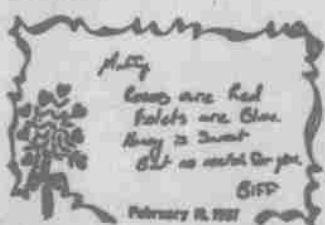 Roses are Red
Violets are Blue
Honey is Sweet
But no match for you.
BIFF
February 19, 1987